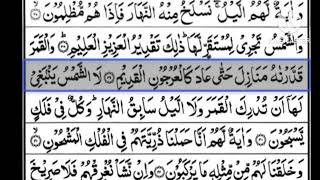 وَاٰيَةٌ لَّهُمُ الَّيْلُ ۖ نَسْلَخُ مِنْهُ النَّهَارَ فَاِذَا هُمْ مُّظْلِمُوْنَ ۙ
وَالشَّمْسُ تَجْرِيْ لِمُسْتَقَرٍّ لَّهَا ؕ ذٰلِكَ تَقْدِيْرُ الْعَزِيْزِ الْعَلِيْمِ ؕ وَالْقَمَرَ
قَدَّرْنٰهُ مَنَازِلَ حَتّٰى عَادَ كَالْعُرْجُوْنِ الْقَدِيْمِ لَا الشَّمْسُ يَنْۢبَغِيْ
لَهَاۤ اَنْ تُدْرِكَ الْقَمَرَ وَلَا الَّيْلُ سَابِقُ النَّهَارِ ؕ وَكُلٌّ فِيْ فَلَكٍ
يَّسْبَحُوْنَ وَاٰيَةٌ لَّهُمْ اَنَّا حَمَلْنَا ذُرِّيَّتَهُمْ فِي الْفُلْكِ الْمَشْحُوْنِ ۙ
وَخَلَقْنَا لَهُمْ مِّنْ مِّثْلِهٖ مَا يَرْكَبُوْنَ وَاِنْ نَّشَاْ نُغْرِقْهُمْ فَلَا صَرِيْخَ